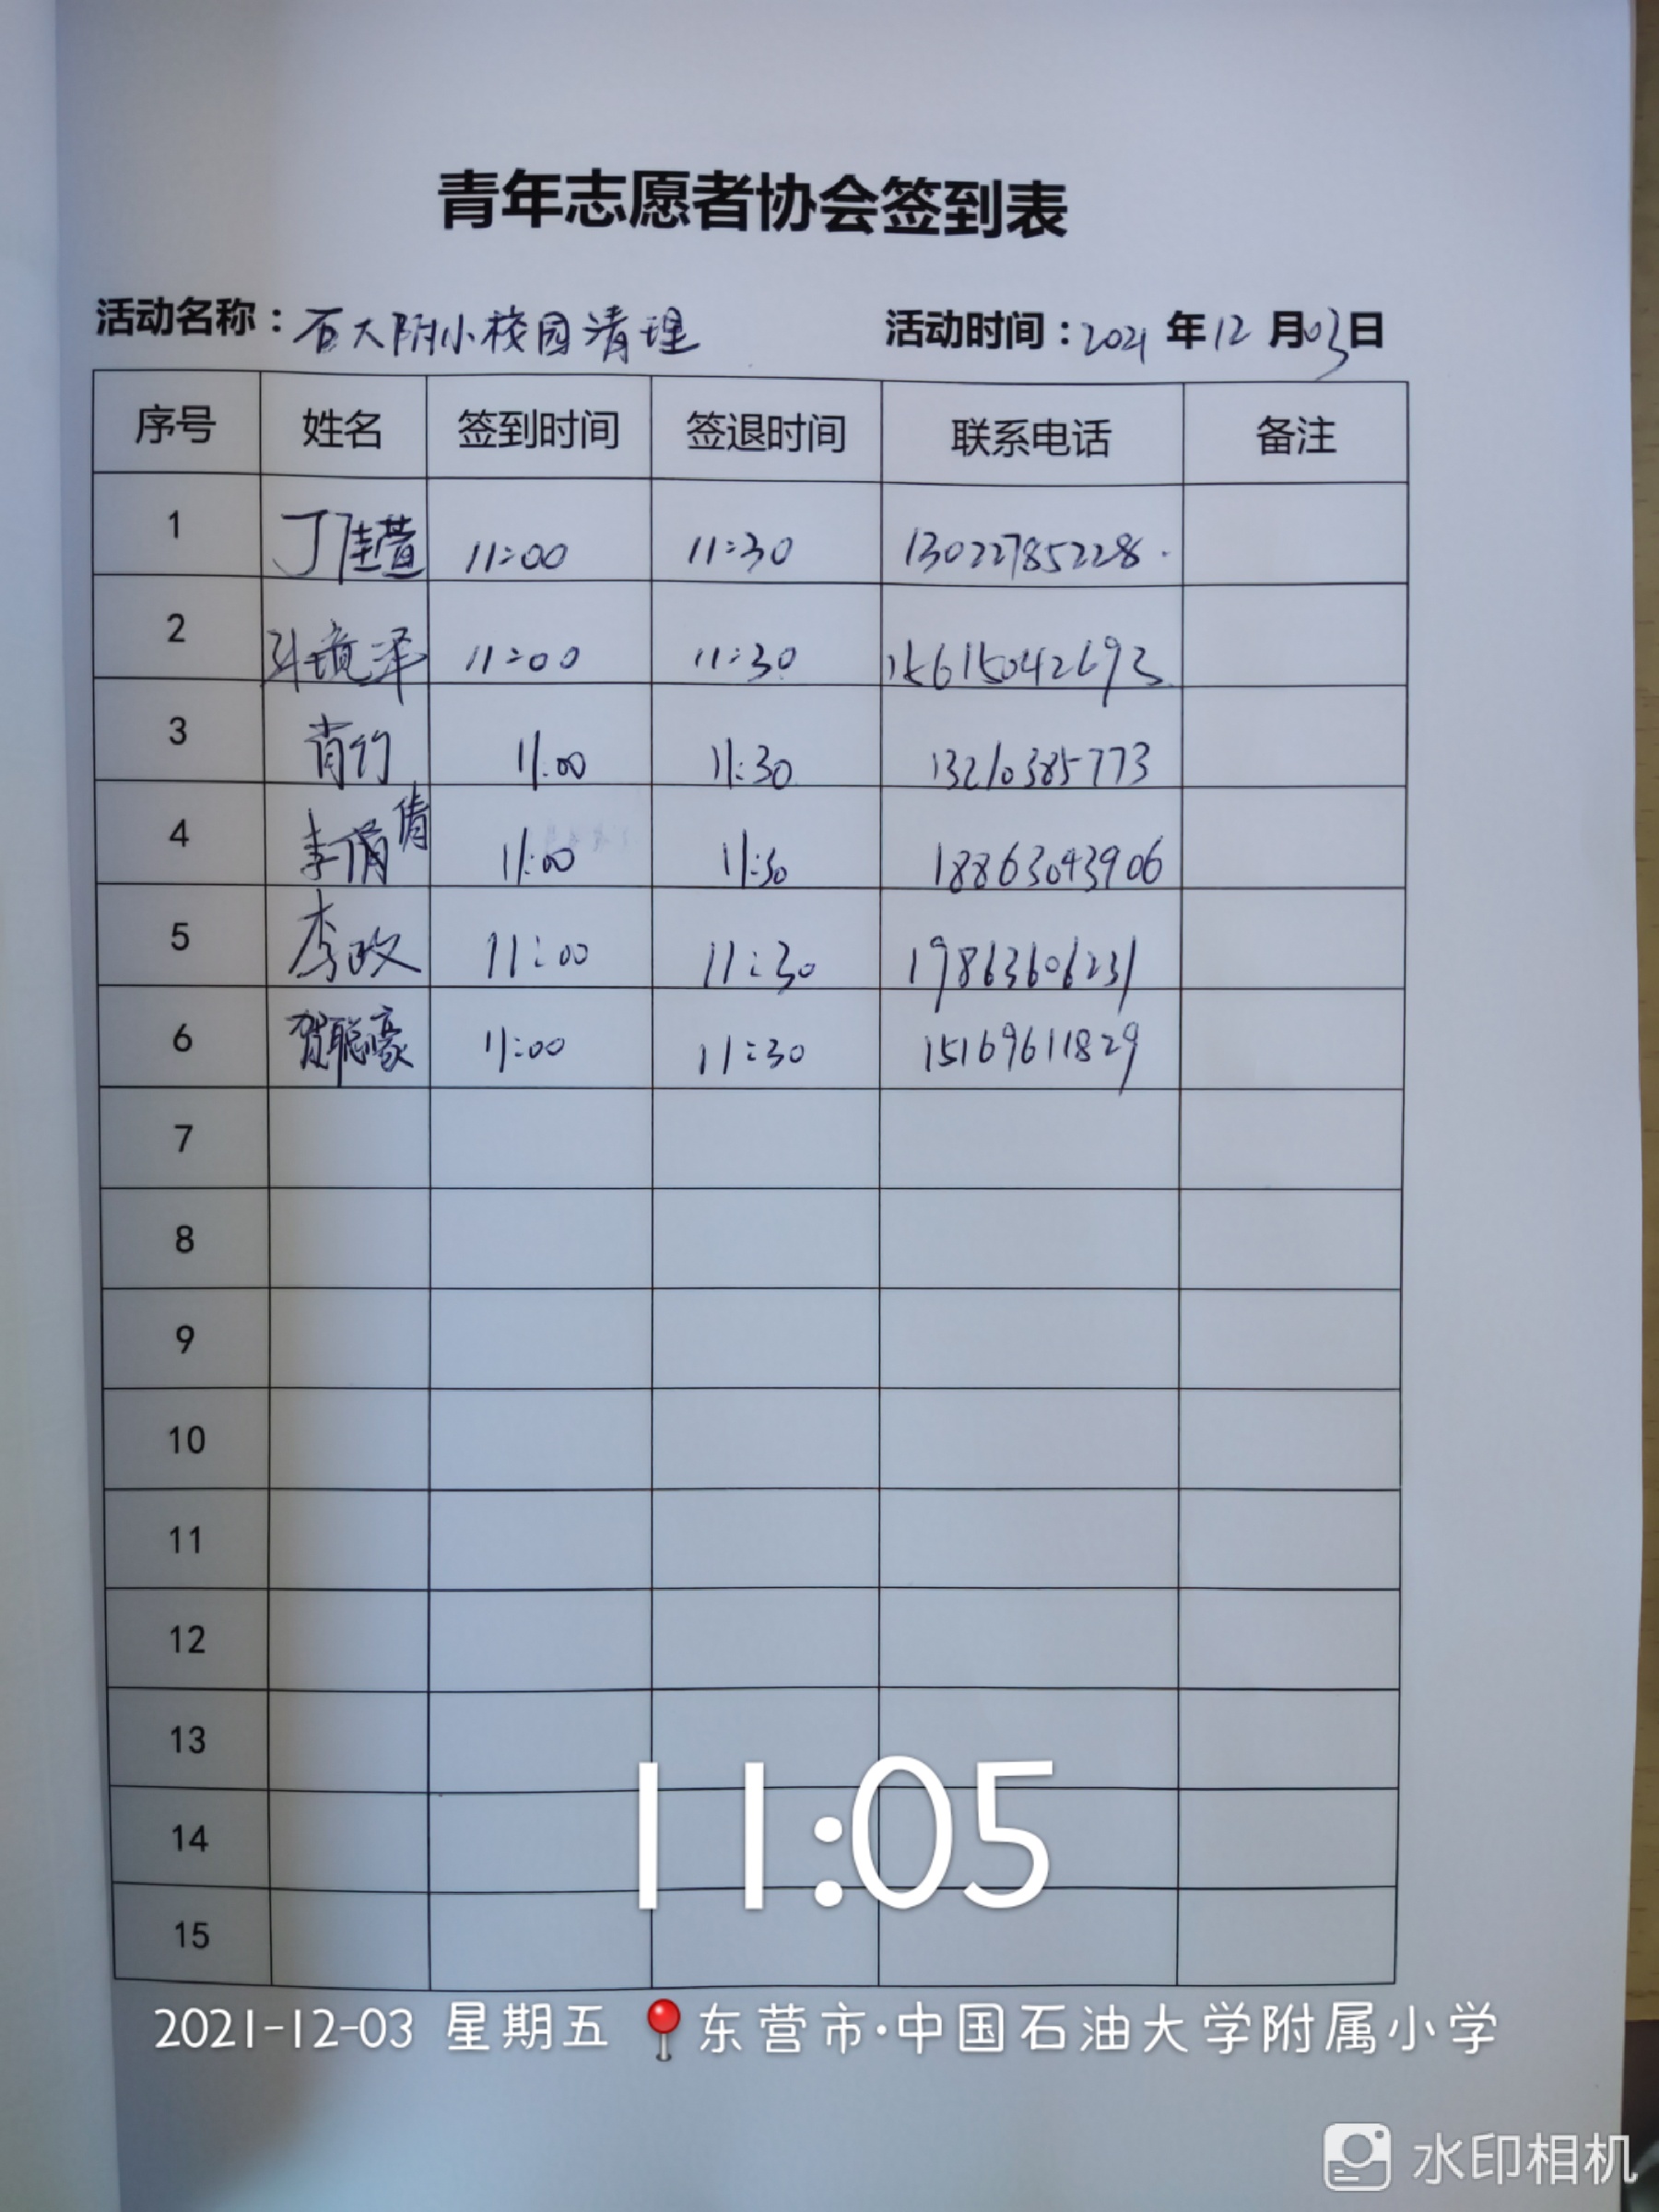 青年志愿者协会签到表
活动名称：石大附小校园清理 活动时间：2021年12月03日
序号 姓名 签到时间 签退时间 联系电话 备注
1 丁佳萱 11:00 11:30 13022785228
2 11:00 11:30 15615042693
3 肖竹 11:00 11:30 13210385773
4 李倩 11:00 11:30 18863043906
5 李政 11:00 11:30 19863606231
6 贺聪豪 11:00 11:30 15169611829
7
8
9
10
11
12
13
14
15
11:05
2021-12-03 星期五 东营市·中国石油大学附属小学
水印相机